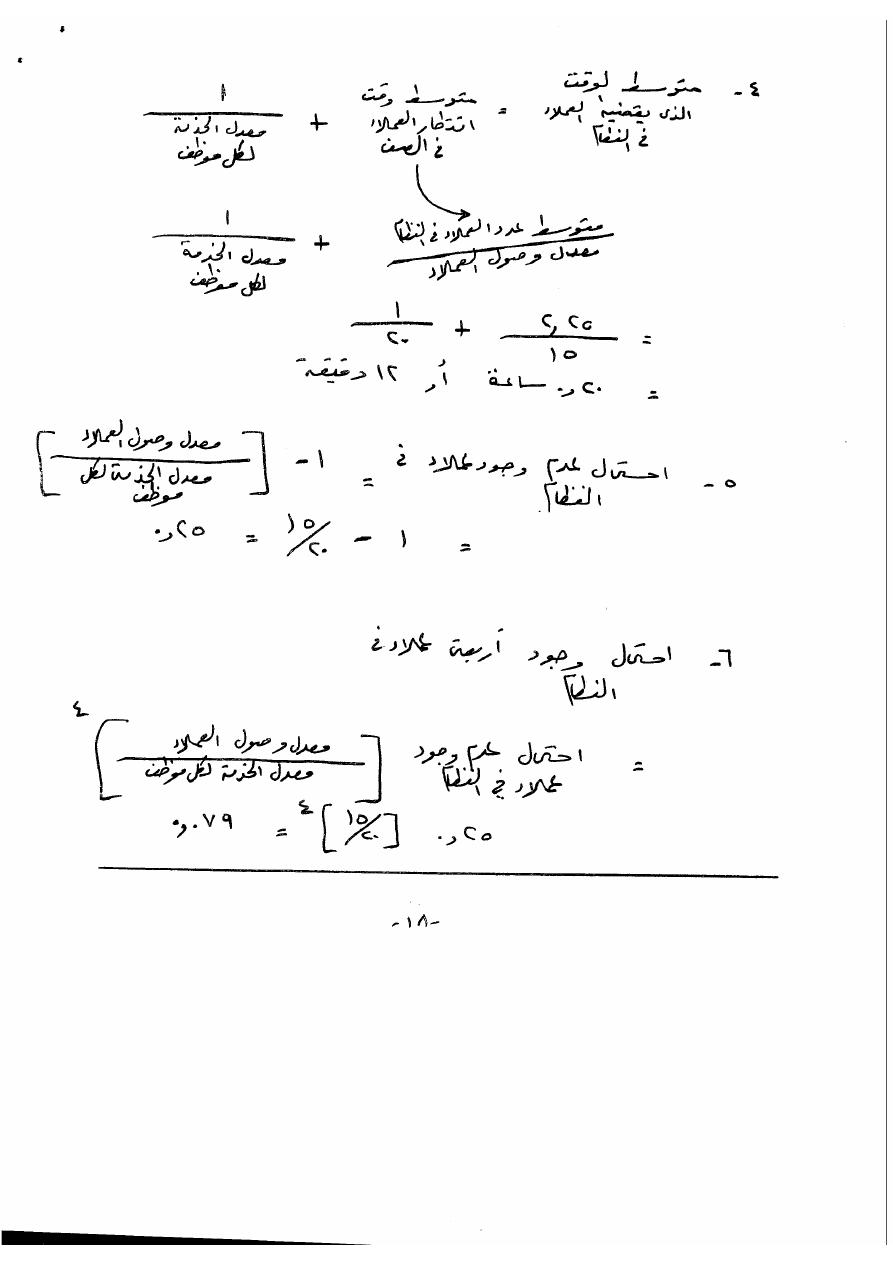 ٤- متوسط الوقت الذى يقضيه العملاء فى النظام = متوسط وقت انتظار العملاء فى الصف + ١ / معدل الخدمة لكل موظف
متوسط عدد العملاء فى النظام / معدل وصول العملاء + ١ / معدل الخدمة لكل موظف
= ٢,٢٥ / ١٥ + ١ / ٢٠
= ٢٠ر. ساعة أو ١٢ دقيقة
٥- احتمال عدم وجود عملاء فى النظام = ١ - [معدل وصول العملاء / معدل الخدمة لكل موظف]
= ١ - ١٥/٢٠ = ٢٥ر.
٦- احتمال وجود أربعة عملاء فى
النظام
= احتمال عدم وجود عملاء فى النظام [معدل وصول العملاء / معدل الخدمة لكل موظف]٤
٢٥ر. [١٥/٢٠]٤ = ٠٧٩ر.
-١٨-